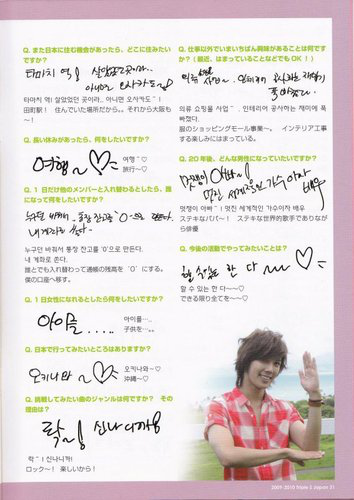 Q. また日本に住む機会があったら、どこに住みたいですか?
타마치 역! 살았었던 곳이라.
아니면 오사카도~!
타마치 역! 살았었던 곳이라. 아니면 오사카도~!
田町駅! 住んでいた場所だから。。それから大阪も~!
Q. 長い休みがあったら、何をしたいですか?
여행~♡
여행~♡
旅行~♡
Q. 1日だけ他のメンバーと入れ替わるとしたら、誰になって何をしたいですか?
누구던 바꿔서 통장 잔고를 '0'으로 만든다.
내 계좌로 쏜다.
누구던 바꿔서 통장 잔고를 '0'으로 만든다.
내 계좌로 쏜다.
誰とでも入れ替わって通帳の残高を '0' にする。
僕の口座へ移す。
Q. 1日女性になれるとしたら何をしたいですか?
아이를.....
아이를….
子供を…。。
Q. 日本で行ってみたいところはありますか?
오키나와~♡
오키나와~♡
沖縄~♡
Q. 挑戦してみたい曲のジャンルは何ですか? その理由は?
락~! 신나니까!
락~! 신나니까!
ロック~! 楽しいから!
Q. 仕事以外でいまいちばん興味があることは何ですか?(最近、はまっていることなどでもOK!)
의류 쇼핑몰 사업~. 인테리어 공사하는 재미에 푹 빠졌다.
服のショッピングモール事業~。 インテリア工事する楽しみにはまっている。
Q. 20年後、どんな男性になっていたいですか?
멋쟁이 아빠~!
멋진 세계적인 가수이자 배우
멋쟁이 아빠~! 멋진 세계적인 가수이자 배우
ステキなパパー! ステキな世界的歌手でありながら俳優
Q. 今後の活動でやってみたいことは?
할 수 있는 한 다~~♡
할 수 있는 한 다~~♡
できる限り全てを~~♡
2009-2010 Triple S Japan 21